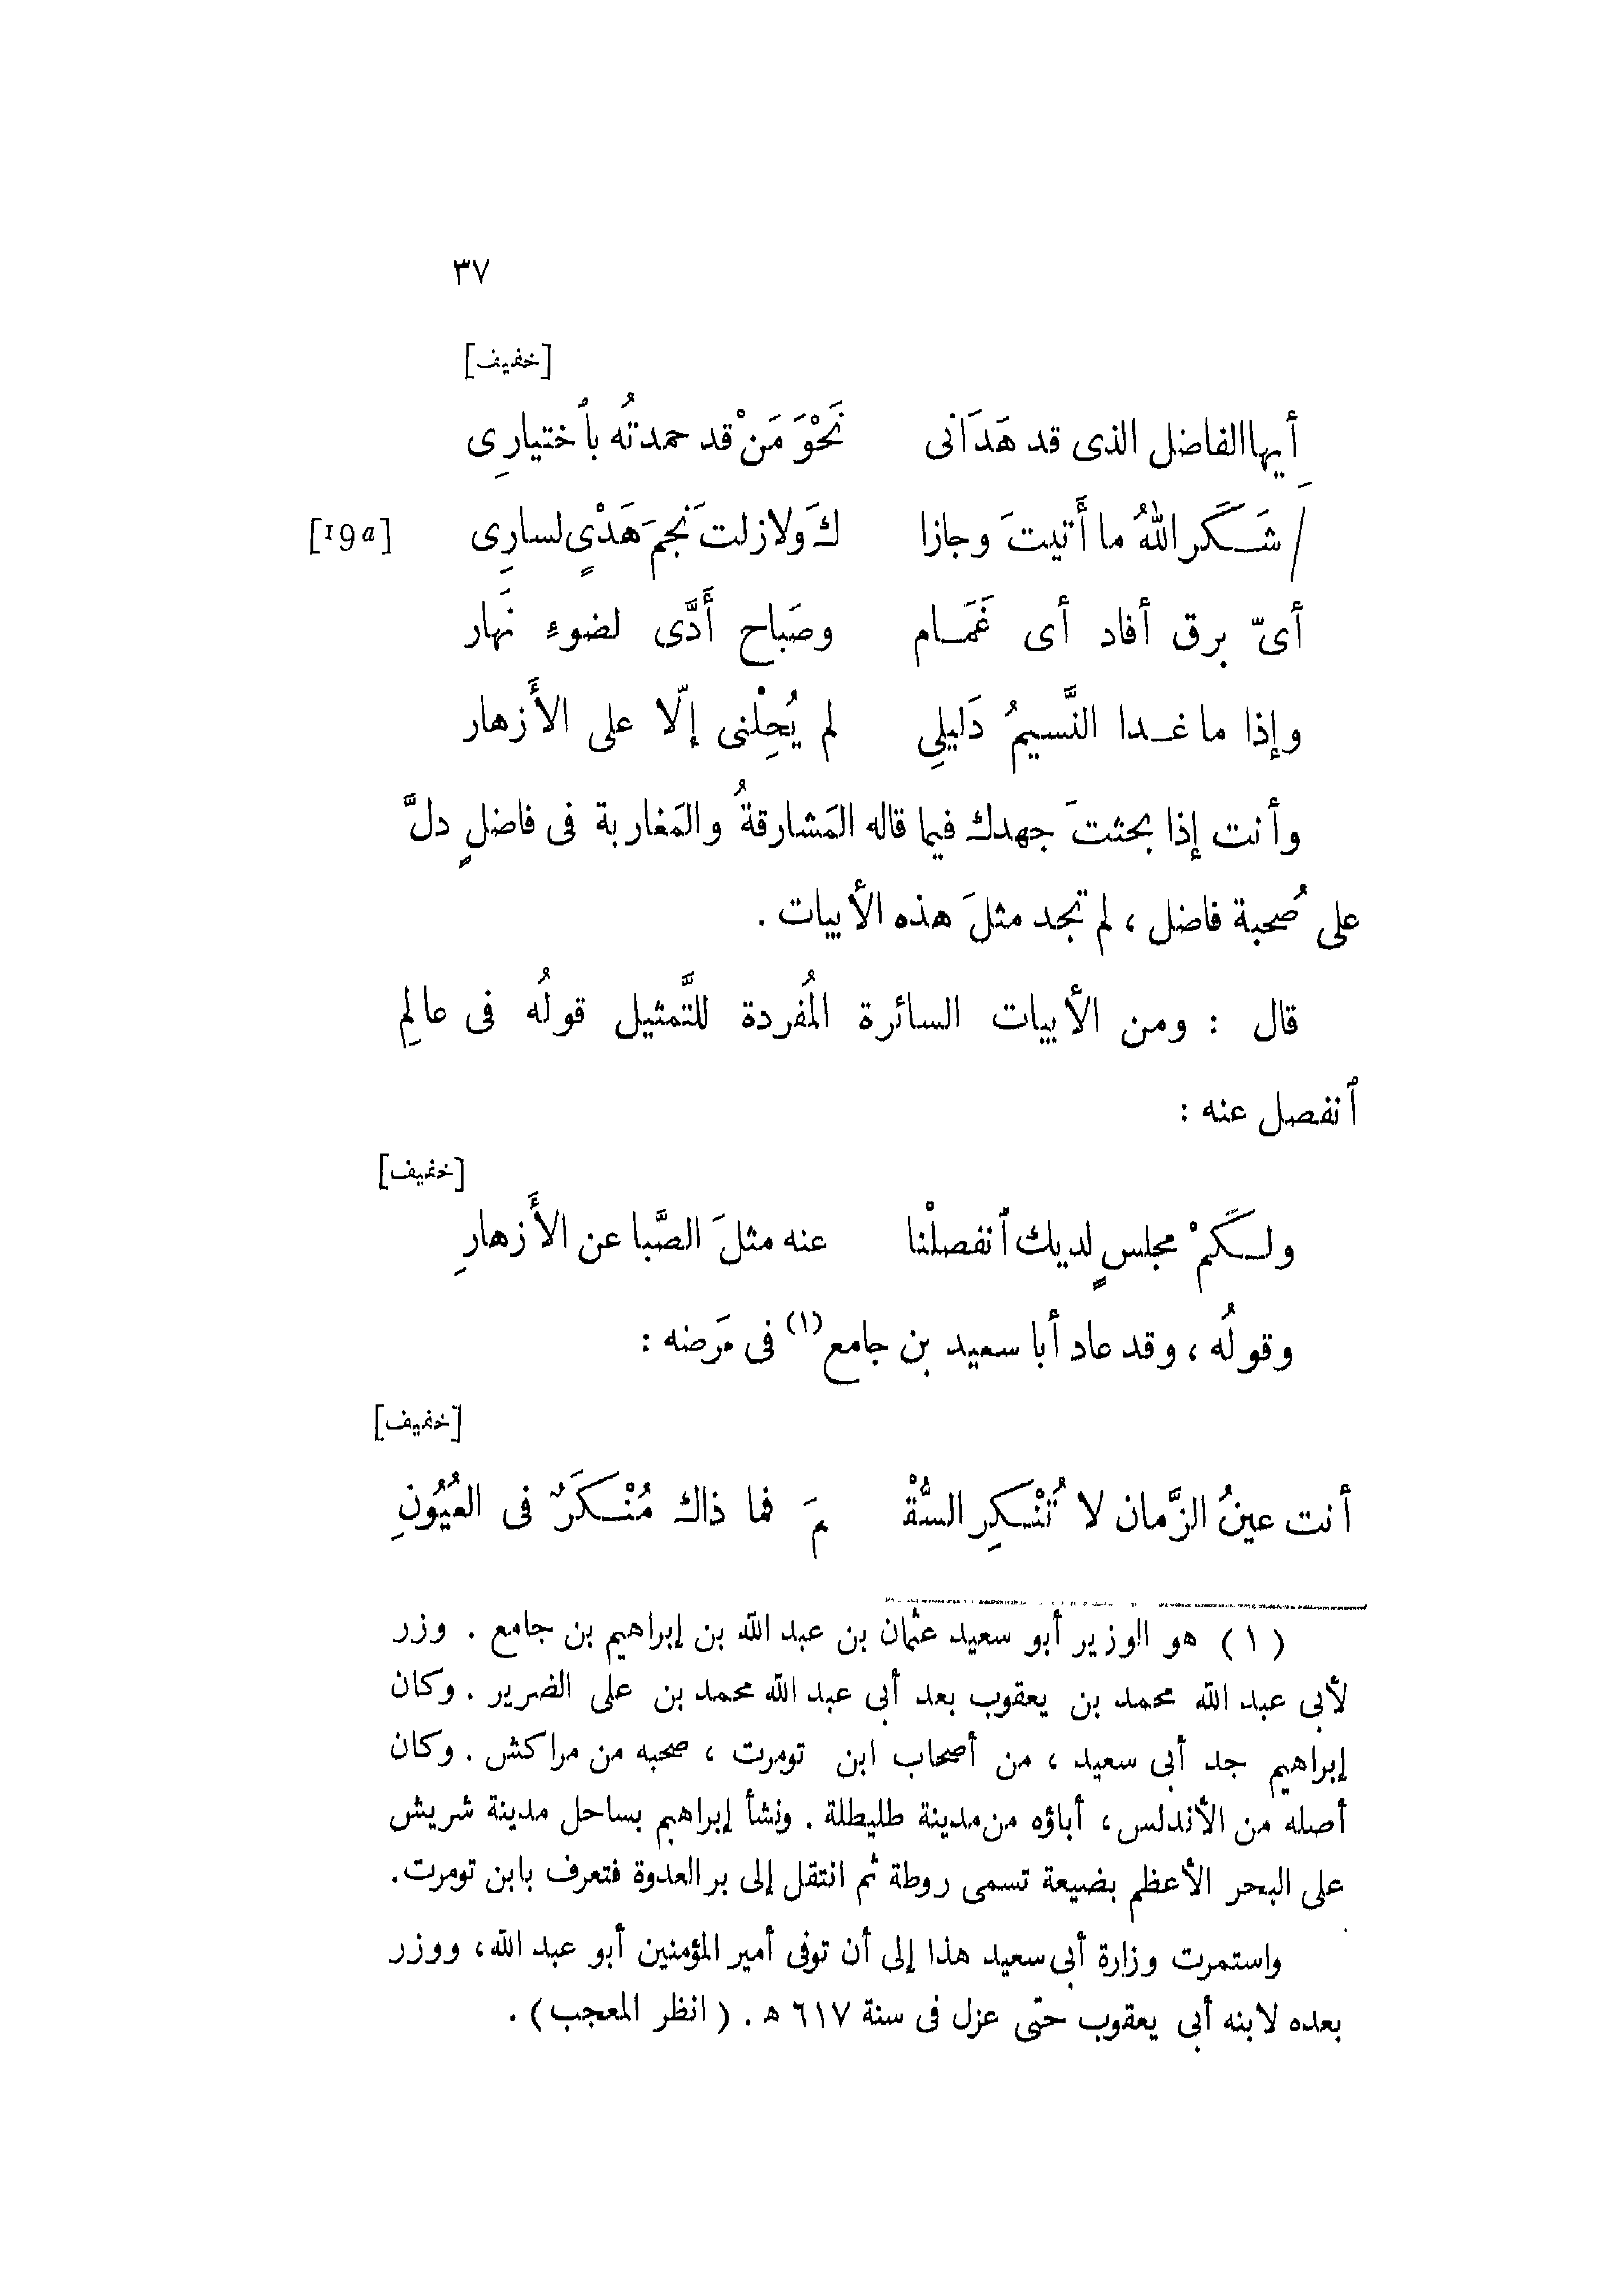 ٣٧
[خفيف]
أيها الفاضل الذى قد هَدَانى نَحْوَ مَنْ قد حمدتُه بٱختيارِى
/ شَكَر اللهُ ما أَتيتَ وجازا كَ ولا زلتَ نجمَ هَدْيٍ لسارِى [19a]
أىّ برق أفاد أى غَمَام وصَباح أَدَّى لضوءِ نَهار
وإذا ما غدا النَّسيمُ دَليلِي لم يُحِلْنى إلّا على الأَزهار
وأنت إذا بحثتَ جهدك فيما قاله المَشارقةُ والمَغاربة فى فاضلٍ دلَّ
على صُحبة فاضل ، لم تجد مثلَ هذه الأبيات .
قال : ومن الأبيات السائرة المُفردة للتَّمثيل قولُه فى عالِم
ٱنفصل عنه :
[خفيف]
ولكَمْ مجلسٍ لديك ٱنفصلْنا عنه مثلَ الصَّبا عن الأَزهارِ
وقولُه ، وقد عاد أبا سعيد بن جامع (١) فى مَرضه :
[خفيف]
أنت عينُ الزَّمان لا تُنْكِر السُّقْ مَ فما ذاك مُنْكَرٌ فى العُيُونِ
(١) هو الوزير أبو سعيد عثمان بن عبد الله بن إبراهيم بن جامع . وزر
لأبى عبد الله محمد بن يعقوب بعد أبى عبد الله محمد بن على الضرير . وكان
إبراهيم جد أبى سعيد ، من أصحاب ابن تومرت ، صحبه من مراكش . وكان
أصله من الأندلس ، أباؤه من مدينة طليطلة . ونشأ إبراهيم بساحل مدينة شريش
على البحر الأعظم بضيعة تسمى روطة ثم انتقل إلى بر العدوة فتعرف بابن تومرت.
واستمرت وزارة أبى سعيد هذا إلى أن توفى أمير المؤمنين أبو عبد الله، ووزر
بعده لابنه أبى يعقوب حتى عزل فى سنة ٦١٧ ه . ( انظر المعجب ) .